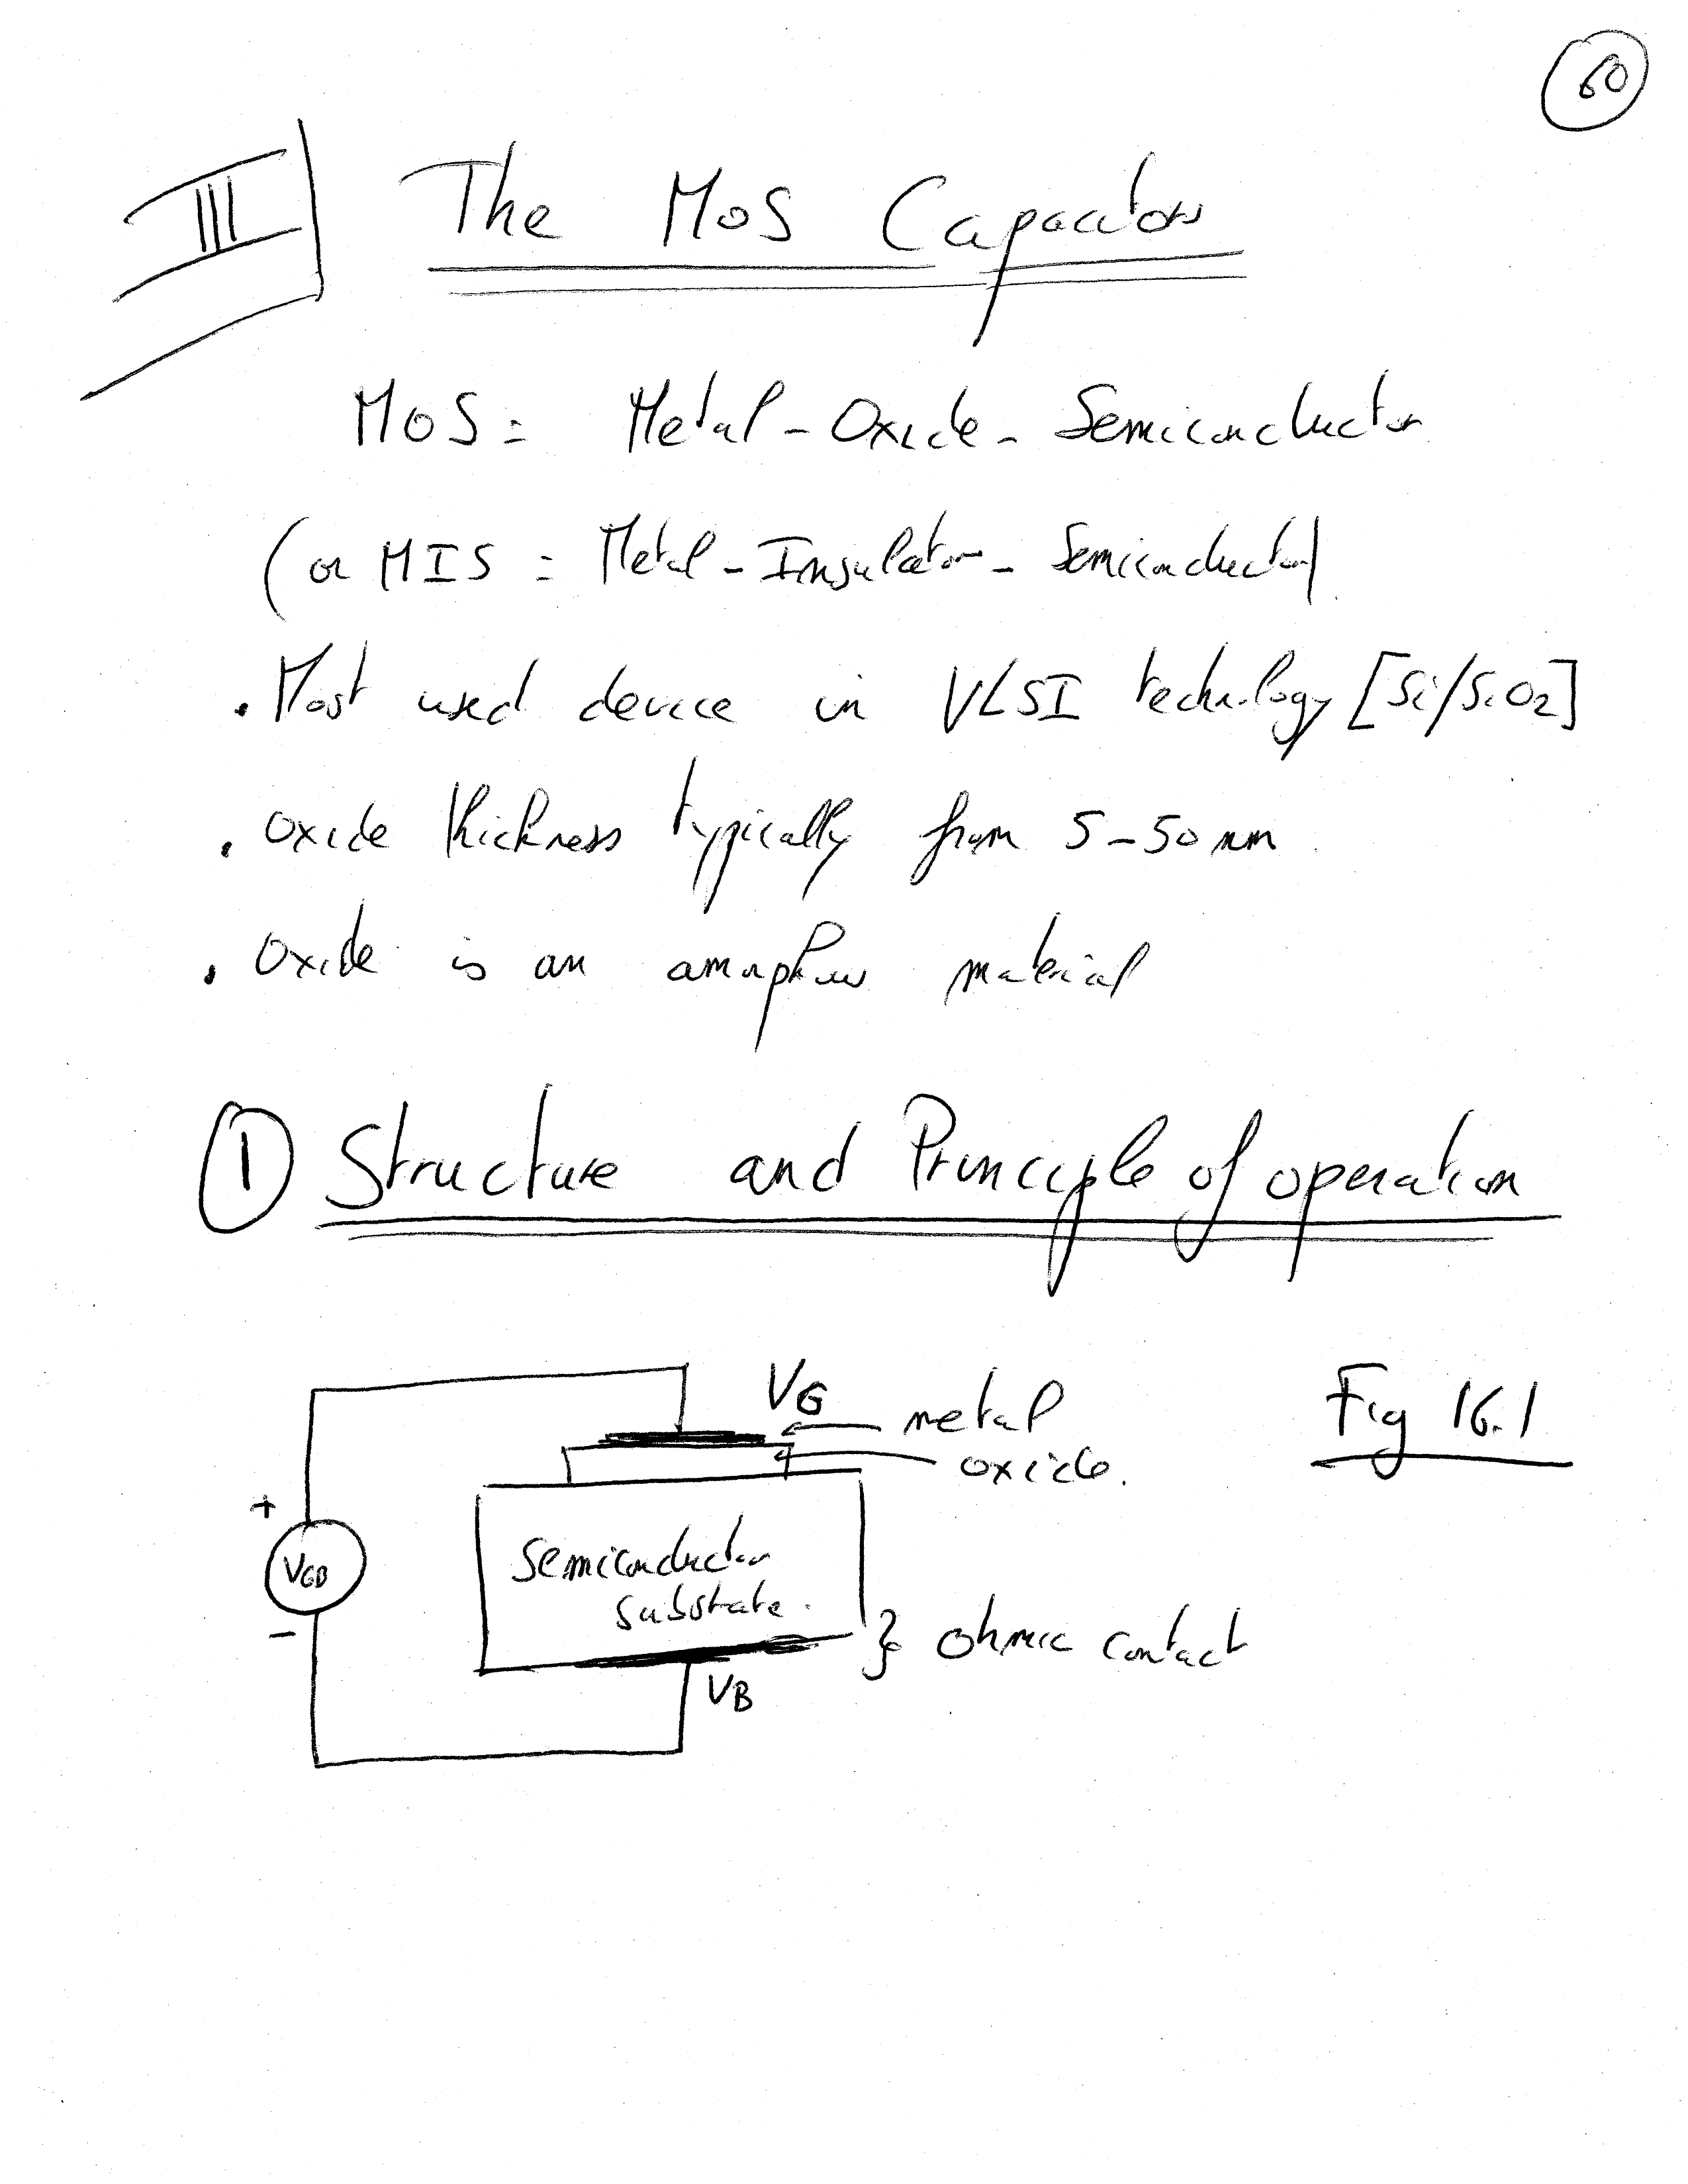 60
III The MOS Capacitors
MOS = Metal-Oxide-Semiconductor
(or MIS = Metal-Insulator-Semiconductor)
. Most used device in VLSI technology [Si/SiO2]
. Oxide thickness typically from 5-50 nm.
. Oxide is an amorphous material
1 Structure and Principle of operation
VG
metal
Fig 16.1
oxide.
+
VGB
-
Semiconductor
substrate.
} Ohmic contact
VB